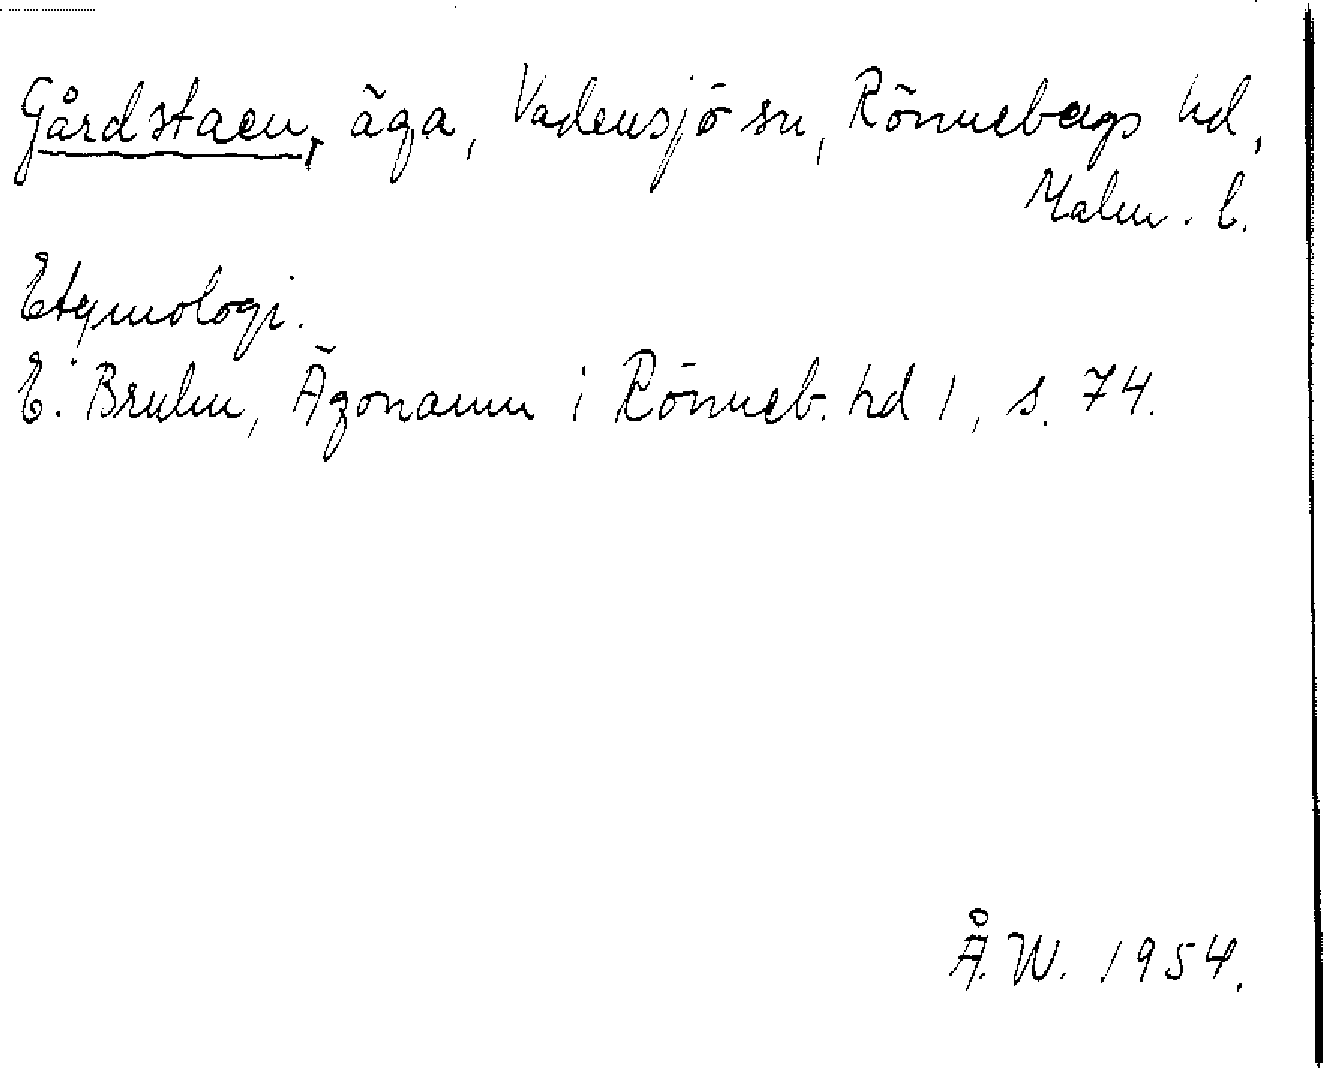 Gårdstaen, äga, Vadensjö sn, Rönnebergs hd,
Malm. l.
Etymologi.
E. Bruhn, Ägonamn i Rönneb. hd 1, s. 74.
Å. W. 1954.